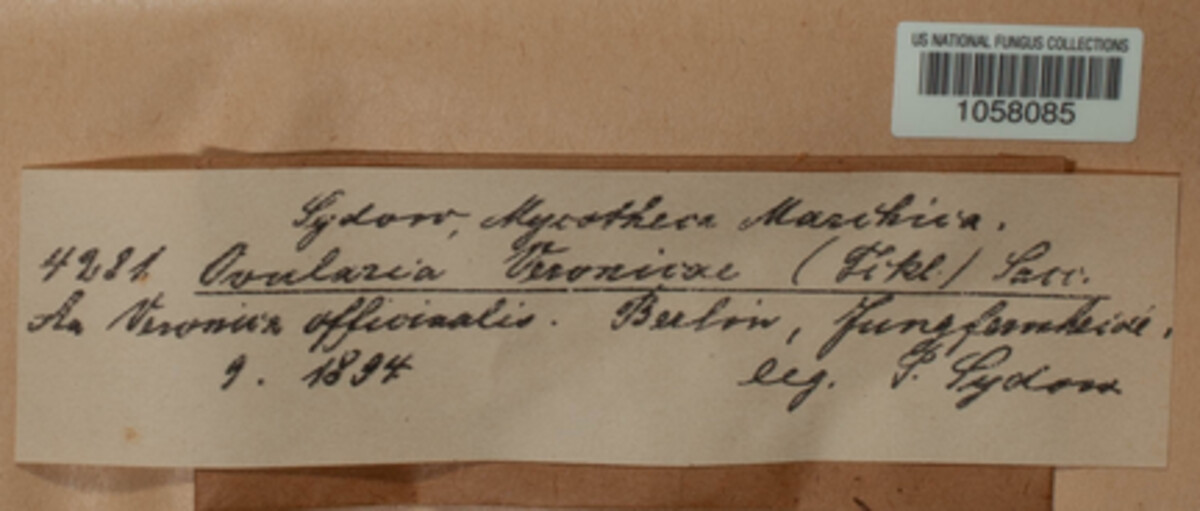 US NATIONAL FUNGUS COLLECTIONS
1058085
Sydow, Mycotheca Marchica.
4281 Ovularia Veronicae (Fckl.) Sacc.
An Veronica officinalis. Berlin, Jungfernheide,
9. 1894 leg. P. Sydow